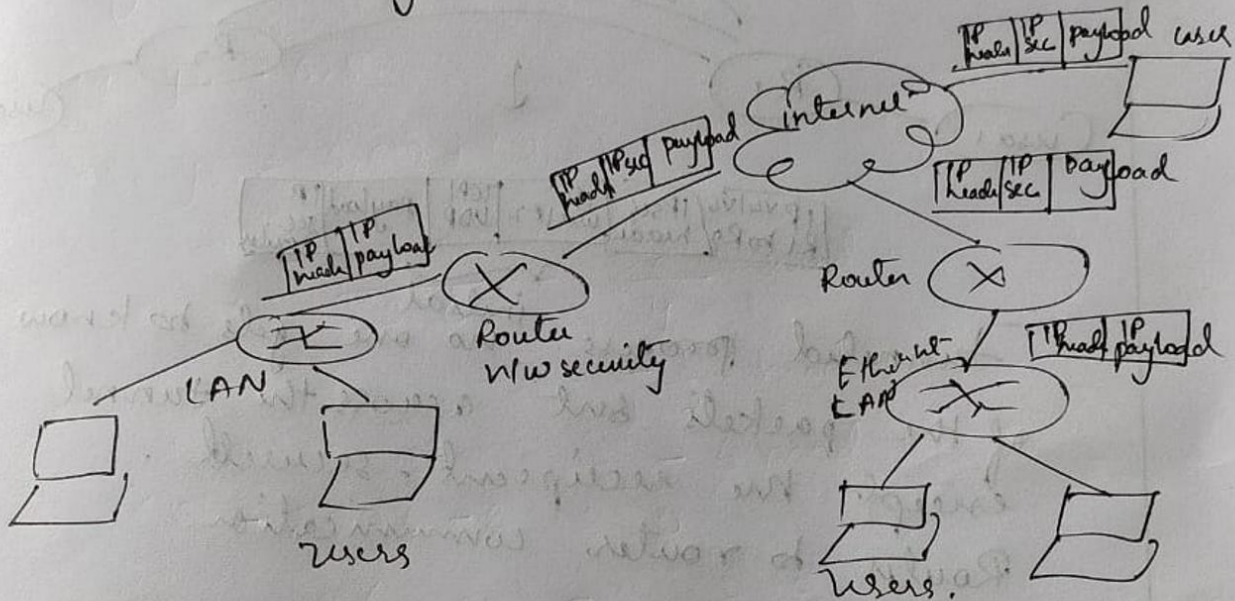 IP head IP sec payload user
internet
IP head IP sec payload
IP head IP sec payload
IP head IP payload
Router
N/W security
Router
IP head IP payload
LAN
Ethernet
LAN
users
users.